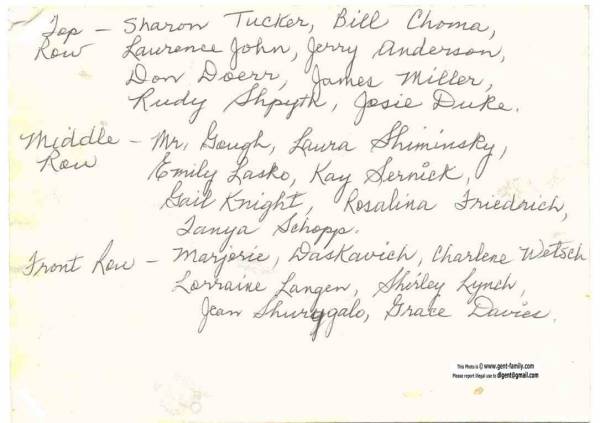 Top - Sharon Tucker, Bill Choma,
Row Laurence John, Jerry Anderson,
Don Doerr, James Miller,
Rudy Shpyth, Josie Duke.
Middle - Mr. Gough, Laura Shiminsky,
Row Emily Lasko, Kay Sernick,
Gail Knight, Rosalina Friedrich,
Tanya Schopp.
Front Row - Marjorie, Daskavich, Charlene Wetsch
Lorraine Langen, Shirley Lynch,
Jean Grace Davies.
This Photo is © www.gent-family.com
Please report illegal use to dlgent@gmail.com